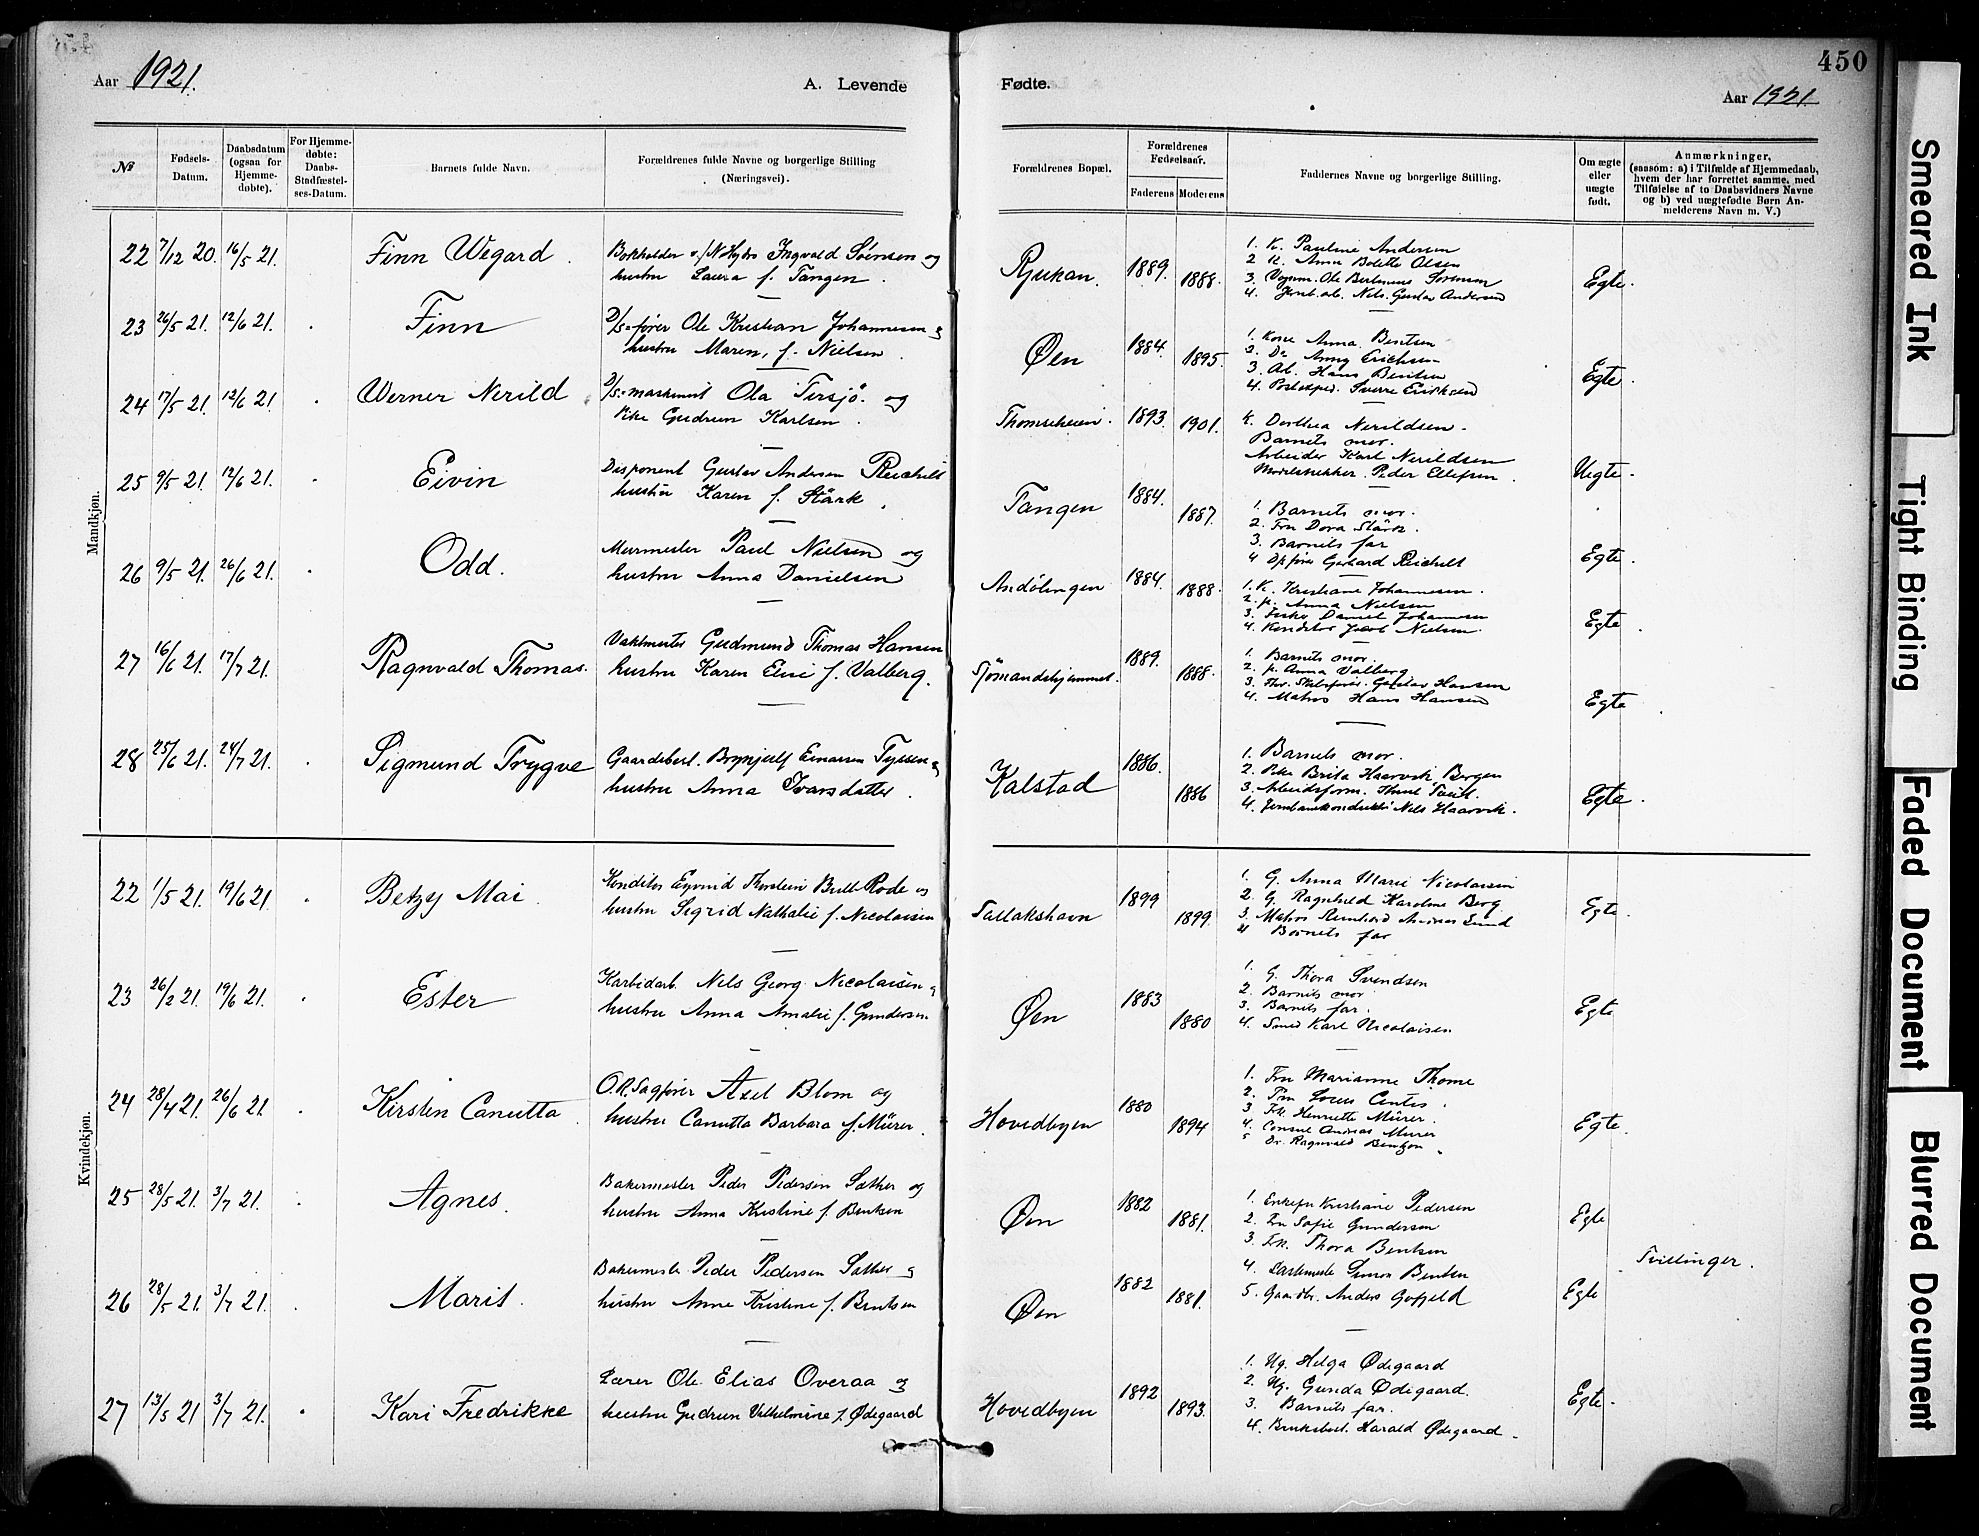 450
Aar 1921.
A. Levende
Fødte.
Aar 1921
№
Fødsels-Datum.
Daabsdatum (ogsaa for Hjemme-døbte).
For Hjemme-døbte: Daabs-Stadfæstel-ses-Datum.
Barnets fulde Navn.
Forældrenes fulde Navne og borgerlige Stilling (Næringsvei).
Forældrenes Bopæl.
Forældrenes Fødselsaar.
Faderens
Moderens
Faddernes Navne og borgerlige Stilling.
Om ægte eller uægte født.
Anmærkninger, (saasom: a) i Tilfælde af Hjemmedaab, hvem der har forrettet samme, med Tilføielse af to Daabsvidners Navne og b) ved uægtefødte Børn Anmelderens Navn m. V.)
Mandkjøn.
22 7/12 20. 16/5 21. Finn Wegard.
Bokholder v/N. Hydro Ingvald Sørensen og
hustru Laura f. Tangen.
Rjukan. 1889. 1888.
1. K. Pauline Andersen
2 K. Anna Bolette Olsen
3. Ole Sørensen
4. Nils Gustav Andersen
Egte.
23 26/5 21. 12/6 21. Finn
D/s-fører Ole Kristian Johannesen og
hustru Maren, f. Nielsen.
Øen 1884. 1895.
1. Kone Anna Bentsen
2. Do Anny Erichsen
3. Arb. Hans Bentsen
4. Postexped. Sverre Eriksen
Egte.
24 17/5 21. 12/6 21. Werner Nerild
D/s-maskinist Ola Tersjö og
Pike Gudrun Karlsen.
Thomseheien. 1893. 1901.
K. Dorthea Nerildsen.
Barnets mor.
Arbeider Karl Nerildsen
Peder Ellefsen.
Uegte.
25 9/5 21. 12/6 21. Eivin
Disponent Gustav Andersen Reichelt
hustru Karen f. Stärk.
Tangen 1884. 1887.
1. Barnets mor.
2. Fru Dora Stärk.
3. Barnets far
4 Gerhard Reichelt
Egte.
26 9/5 21. 26/6 21. Odd.
Murmester Paul Nielsen og
hustru Anna Danielsen
Andølingen 1884. 1888.
1. K. Kristiane Johannesen.
2. p. Anna Nielsen
3. Daniel Johannesen
4. Konditor Jacob Nielsen.
Egte.
27 16/6 21. 17/7 21. Ragnvald Thomas.
Vaktmester Gudmund Thomas Hansen
hustru Karen Elise f. Valberg.
Sjømandshjemmet. 1889. 1888.
1. Barnets mor.
2. p. Anna Valberg
3. Gustav Hansen
4. Matros Hans Hansen
Egte.
28 25/6 21. 24/7 21. Sigmund Trygve
Gaardsbest. Brynjulf Einarsen Tyssen og
hustru Anna Ivarsdatter.
Kalstad 1886. 1886
1. Barnets mor.
2. Pike Brita Haarvik Bergen
3. Arbeidsform.
4. Jernbanekonduktør Nils Haarvik.
Egte.
Kvindekjøn.
22 1/5 21. 19/6 21. Betzy Mai.
Konditor Eyvind Thorstein Bull Rode og
hustru Sigrid Nathalie f. Nicolaisen
Tallakshavn 1899 1899.
1. G. Anna Marie Nicolaisen
2. G. Ragnhild Karoline Berg
3. Matros Reinhard Andreas Lund
4 Barnets far
Egte.
23 26/2 21. 19/6 21. Ester
Karbidarb. Nils Georg Nicolaisen og
hustru Anna Amalie f. Gundersen
Øen 1883 1880
1. G. Thora Svendsen
2. Barnets mor
3. Barnets far.
4. Smed Karl Nicolaisen
Egte
24 28/4 21. 26/6 21 Kirsten Canutta
O.R.Sagfører Axel Blom og
hustru Canutta Barbara f. Mürer.
Hovedbyen 1880 1894
1. Fru Marianne Thome
2. Fru
3 Frk. Henriette Mürer.
4. Consul Andreas Mürer
5 Dr. Ragnvald Bentzon
Egte.
25 28/5 21. 3/7 21. Agnes.
Bakermester Peder Pedersen Sæther og
hustru Anna Kristine f. Bentsen
Øen 1882 1881.
1. Enkefru Kristiane Pedersen
2. Fru Sofie Gundersen
3. Frk. Thora Bentsen
Egte
Tvillinger.
26 28/5 21. 3/7 21. Marit.
Bakermester Peder Pedersen Sæther og
hustru Anne Kristine f. Bentsen
Øen 1882 1881.
4. Simon Bentsen
5. Gaardbr. Anders
Egte
27 13/5 21 3/7 21. Kari Fredrikke
Lærer Ole Elias Overaa og
hustru Gudrun Vilhelmine f. Ødegaard
Hovedbyen 1892 1893.
1. Ug. Helga Ødegaard
2. Ug. Gunda Ødegaard.
3. Barnets far.
4. Bruksbest. Harald Ødegaard.
Egte.
Smeared Ink
Tight Binding
Faded Document
Blurred Document